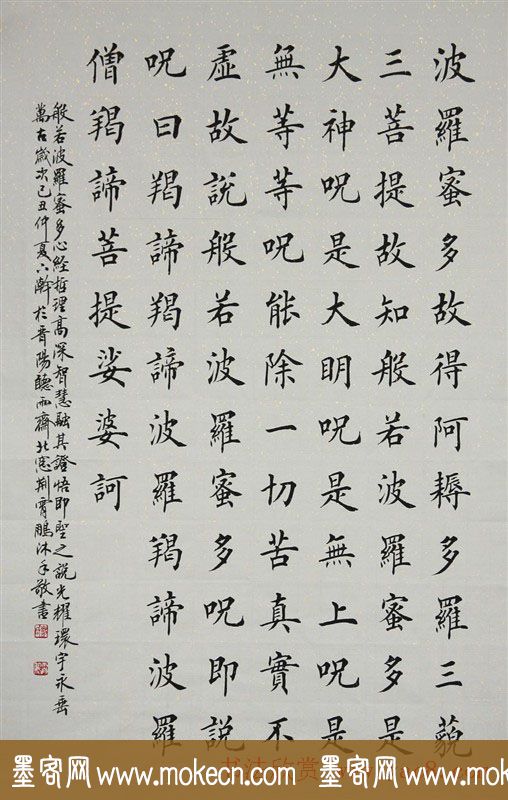 波羅蜜多故得阿耨多羅三藐
三菩提故知般若波羅蜜多是
大神呪是大明呪是無上呪是
無等等呪能除一切苦真實不
虛故說般若波羅蜜多呪即說
呪曰羯諦羯諦波羅羯諦波羅
僧羯諦菩提娑婆訶
般若波羅蜜多心經哲理高深智慧融其證悟即聖之說光耀環宇永垂
萬古歲次己丑仲夏六瀚於晉陽聽雨齋北窓荊霄鵬沐手敬書
墨客网www.mokecn.com 墨客网www.mokecn.com
书法欣赏